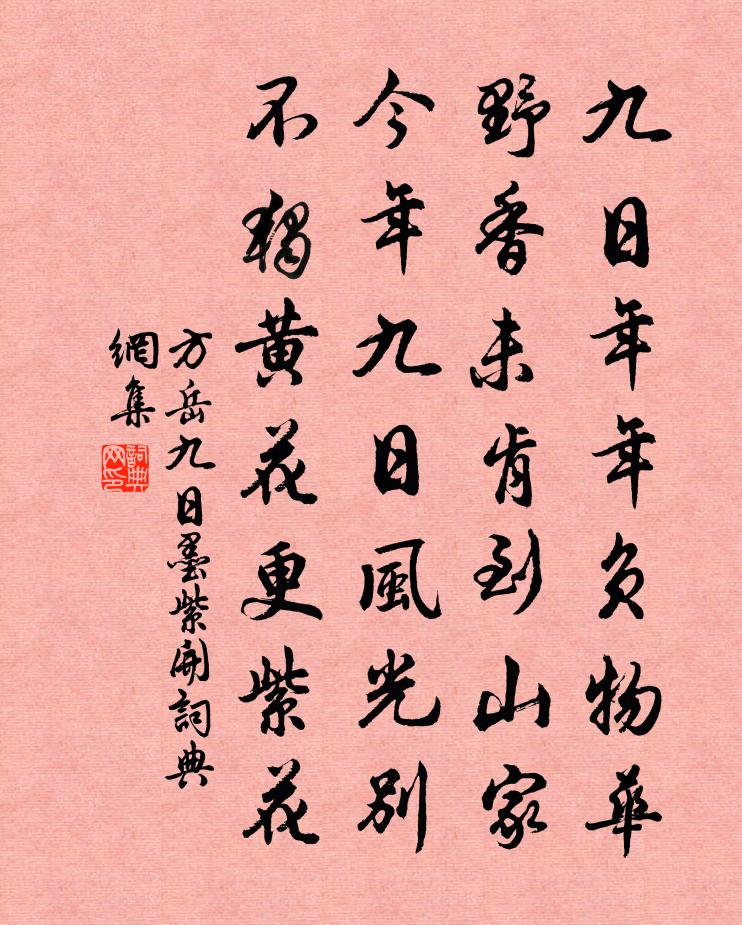 九日年年負物華
野香未肯到山家
今年九日風光別
不獨黃花更紫花
方岳九日墨紫開詞典
網集
詞典
网印